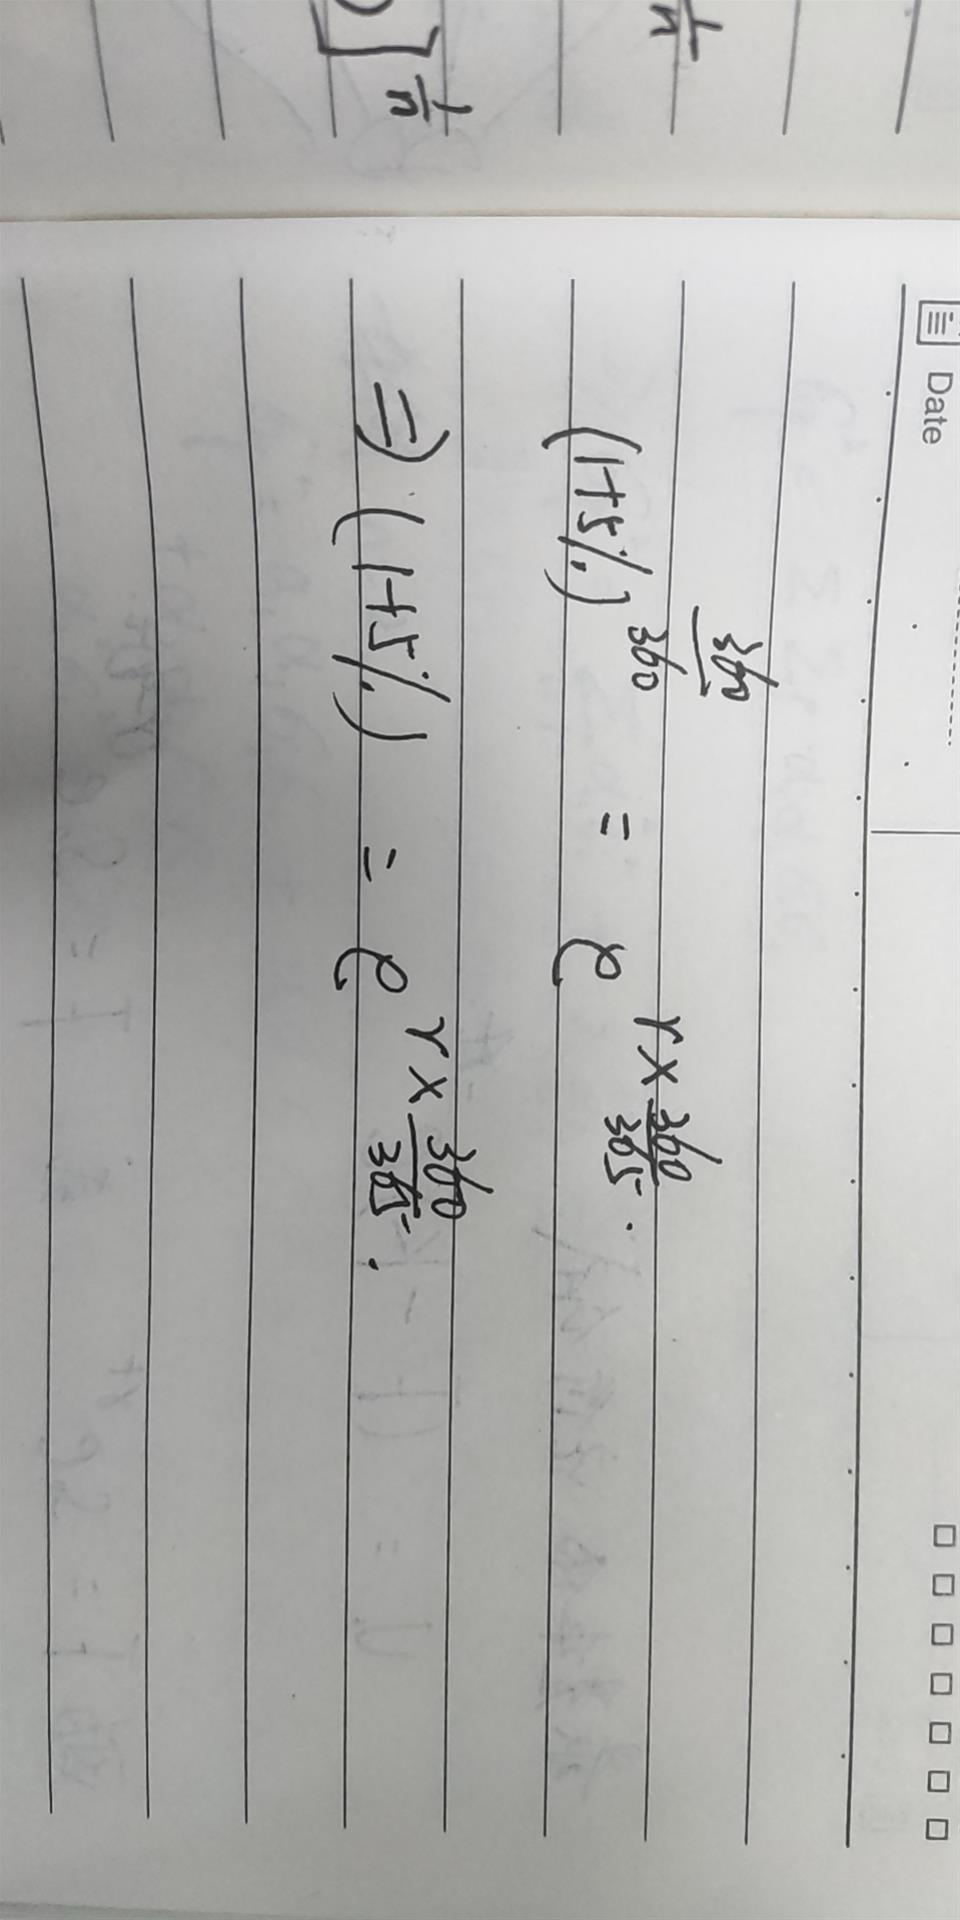 Date
(1+5%)^{\frac{360}{360}} = e^{r×\frac{360}{365}}.
⇒ (1+5%) = e^{r×\frac{360}{365}}.
\frac{1}{n}
]^{\frac{1}{n}}